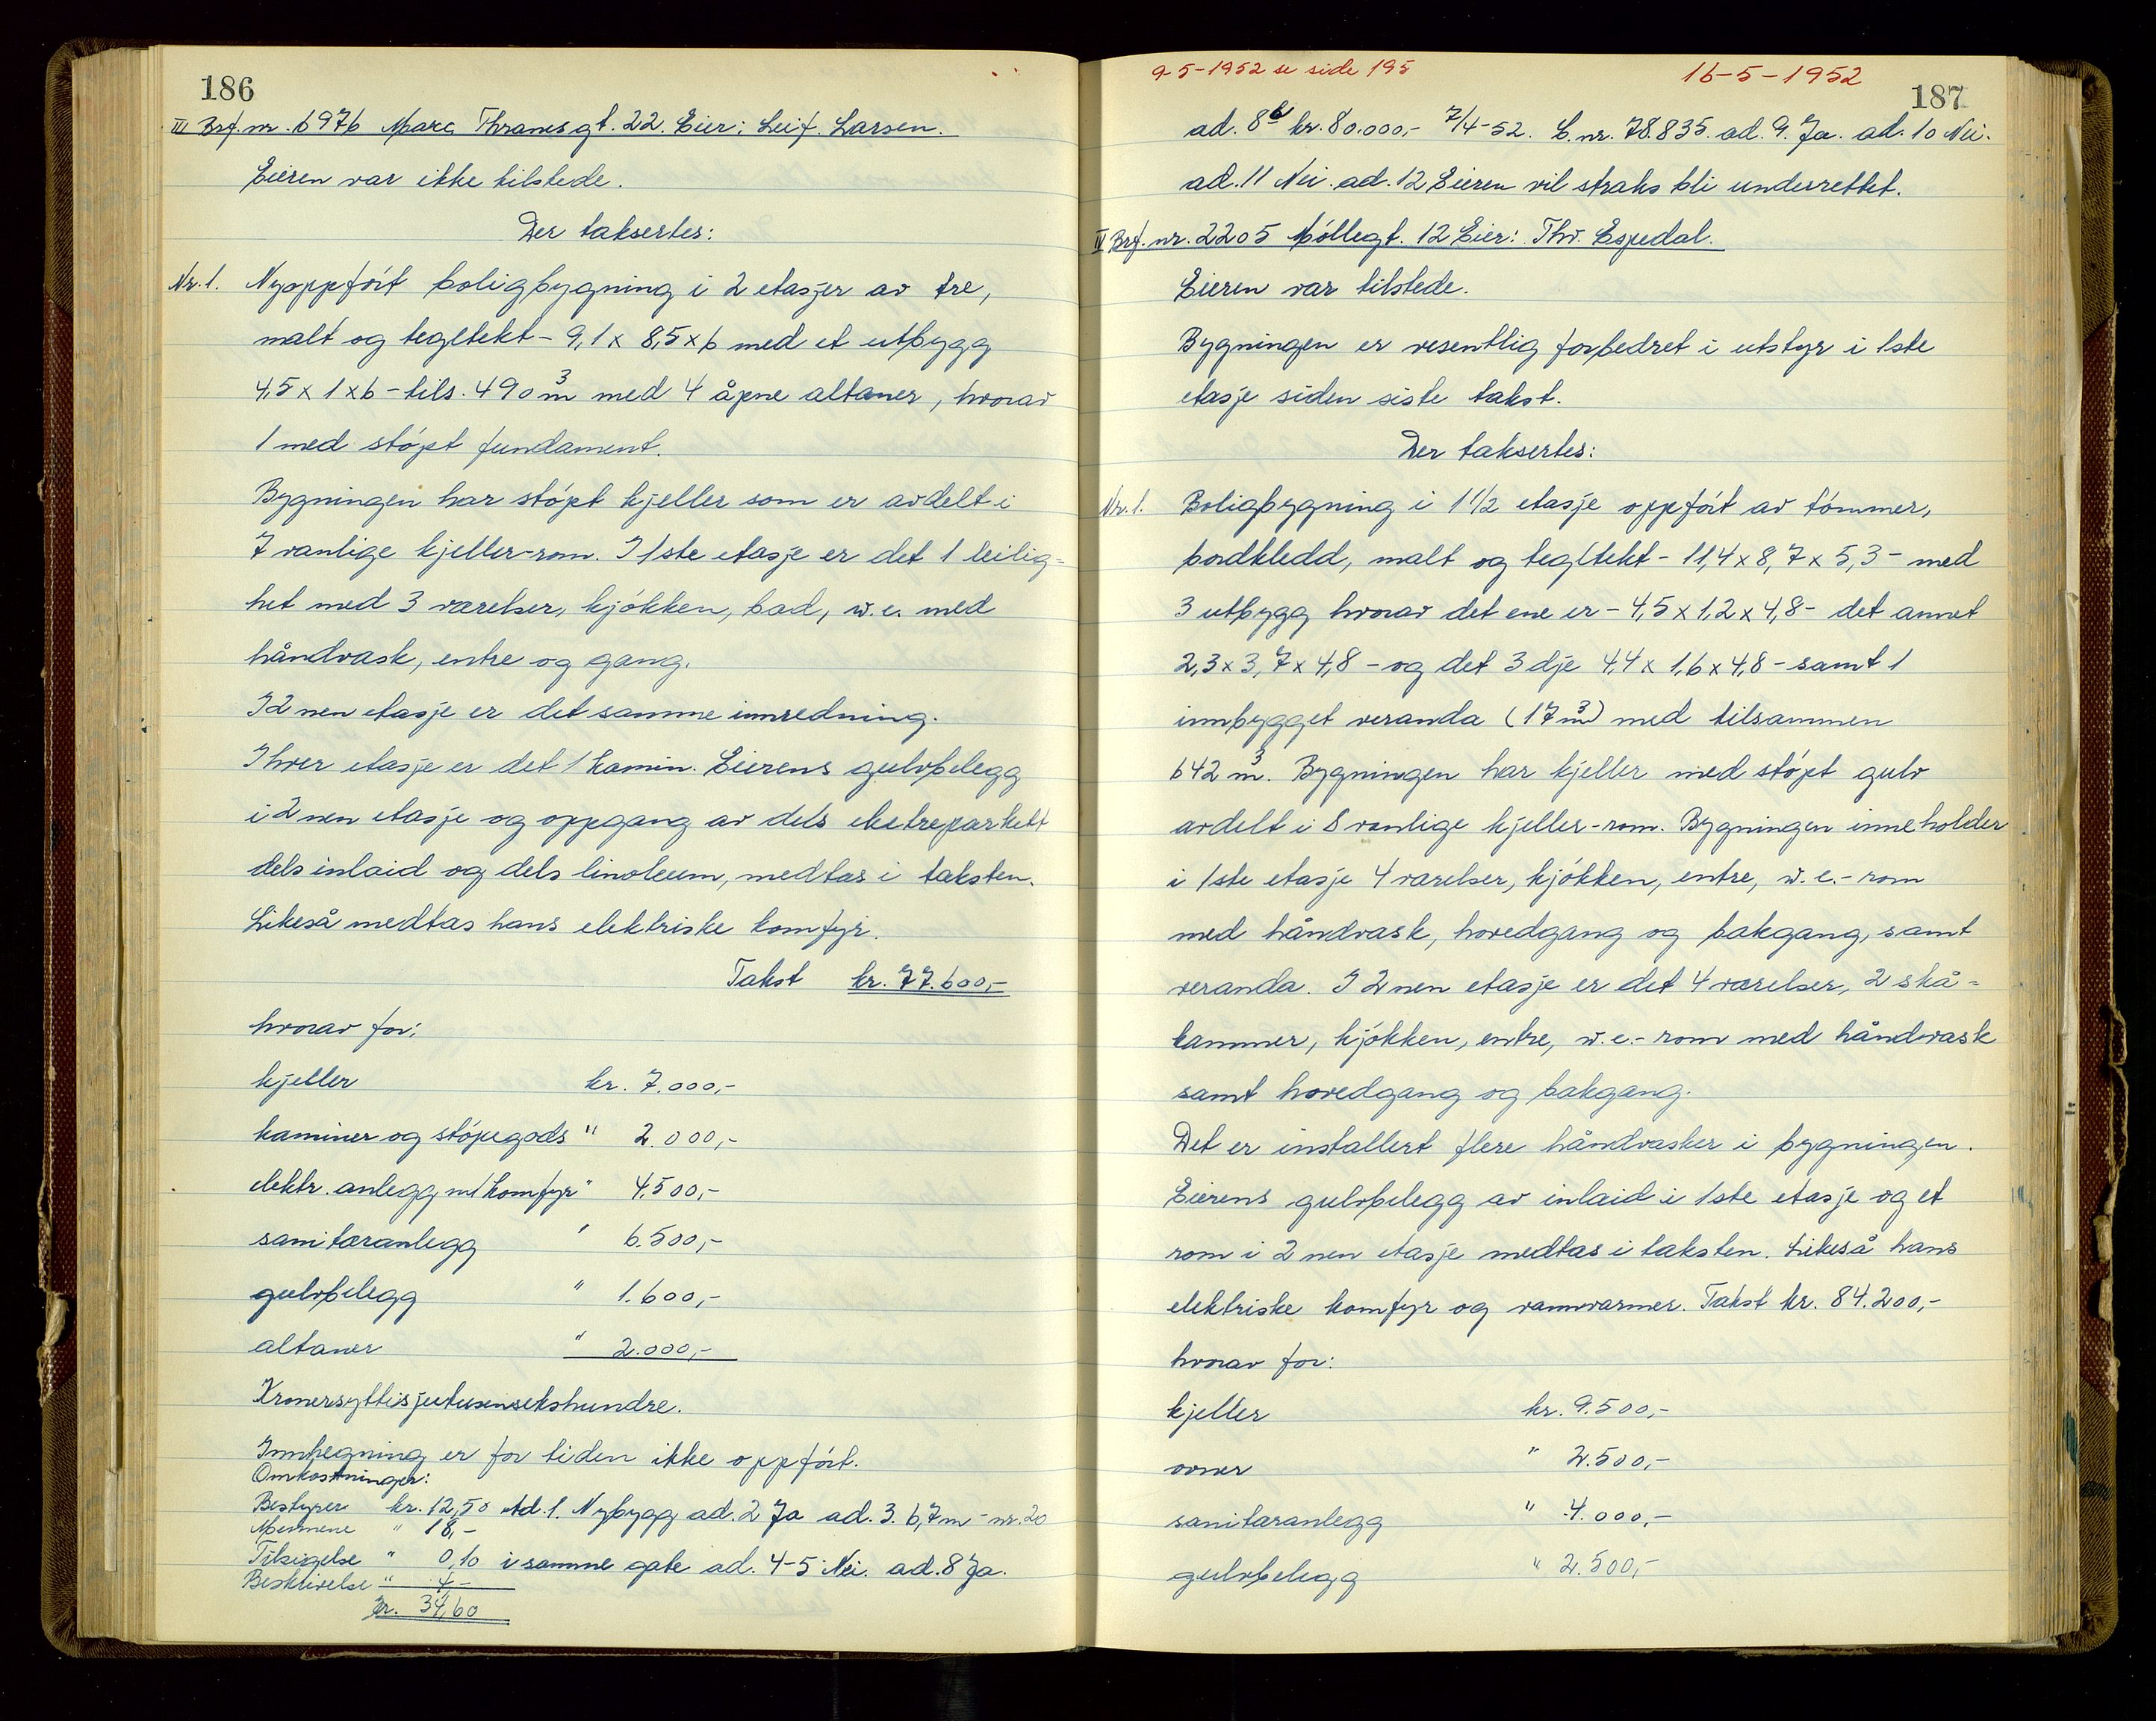 186
III Brf. nr. 6976 Marc Thranes gt. 22. Eier: Leif. Larsen.
Eieren var ikke tilstede.
Der taksertes:
Nr. 1. Nyoppført boligbygning i 2 etasjer av tre,
malt og tegltekt - 9,1 x 8,5 x 6 med et utbygg
4,5 x 1 x 6 - tils. 490 m³ med 4 åpne altaner, hvorav
1 med støpt fundament.
Bygningen har støpt kjeller som er avdelt i
7 vanlige kjeller-rom. I 1ste etasje er det 1 leilig=
het med 3 værelser, kjøkken, bad, w.c. med
håndvask, entre og gang.
I 2nen etasje er det samme innredning.
I hver etasje er det 1 kamin. Eierens gulvbelegg
i 2nen etasje og oppgang av dels eketreparkett
dels inlaid og dels linoleum, medtas i taksten.
Likeså medtas hans elektriske komfyr.
Takst kr. 77.600,-
hvorav for:
kjeller kr. 7.000,-
kaminer og støpegods " 2.000,-
elektr. anlegg m/komfyr " 4.500,-
sanitæranlegg " 6.500,-
gulvbelegg " 1.600,-
altaner " 2.000,-
Kronersyttisjutusensekshundre.
Innhegning er for tiden ikke oppført.
Omkostninger:
Bestyrer kr. 12,50 ad. 1. Nybygg ad. 2 Ja ad. 3. 6,7 m - nr. 20
Mennene " 18,-
Tilsigelse " 0,10 i samme gate ad. 4-5 Nei. ad. 8 Ja.
Beskrivelse " 4,-
Kr. 34,60
9-5-1952 se side 195
16-5-1952
187
ad. 8b kr. 80.000,- 7/4-52. L. nr. 78.835. ad. 9. Ja. ad. 10 Nei.
ad. 11 Nei. ad. 12 Eieren vil straks bli underrettet.
IV Brf. nr. 2205 Møllegt. 12 Eier: Thv. Espedal.
Eieren var tilstede.
Bygningen er vesentlig forbedret i utstyr i 1ste
etasje siden siste takst.
Der taksertes:
Nr. 1. Boligbygning i 1 1/2 etasje oppført av tømmer,
bordkledd, malt og tegltekt - 11,4 x 8,7 x 5,3 - med
3 utbygg hvorav det ene er - 4,5 x 1,2 x 4,8 - det annet
2,3 x 3,7 x 4,8 - og det 3dje 4,4 x 1,6 x 4,8 - samt 1
innbygget veranda (17 m³) med tilsammen
642 m³. Bygningen har kjeller med støpt gulv
avdelt i 8 vanlige kjeller-rom. Bygningen inneholder
i 1ste etasje 4 værelser, kjøkken, entre, w.c.-rom
med håndvask, hovedgang og bakgang, samt
veranda. I 2nen etasje er det 4 værelser, 2 skå=
kammer, kjøkken, entre, w.c.-rom med håndvask
samt hovedgang og bakgang.
Det er installert flere håndvasker i bygningen.
Eierens gulvbelegg av inlaid i 1ste etasje og et
rom i 2nen etasje medtas i taksten. Likeså hans
elektriske komfyr og vannvarmer. Takst kr. 84.200,-
hvorav for:
kjeller kr. 9.500,-
ovner " 2.500,-
sanitæranlegg " 4.000,-
gulvbelegg " 2.500,-